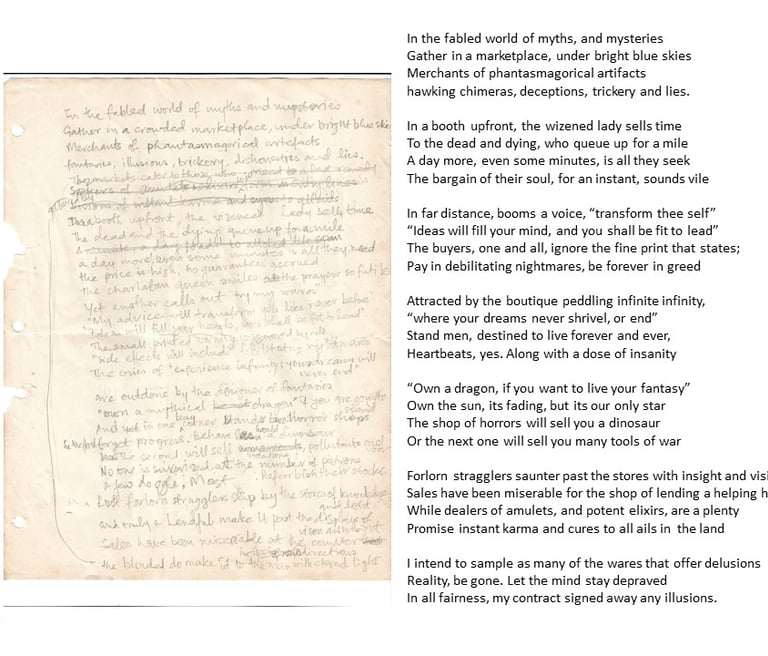 In the fabled world of myths and mysteries
Gather in a crowded marketplace, under bright blue skie
Merchants of phantasmagorical artefacts
fantasies, illusions, trickery, dishonesties and lies.
The markets cater to those who
In a booth upfront, the wizened lady sells time
The dead and the dying queue up to a mile
a day more, even some minutes is all they need
the price is high, no guarantees accrued
the charlatan queen smiles at the prayers so futile
Yet another calls out "try my wares"
"My advice will transform you like never before
"Ideas will fill your hearts, you shall be fit to lead"
The small printed
"side effects will include nightmares
The cries of "experience infinity, your dreams will
never end"
are outdone by the designer of fantasies
"own a mythical dragon" if you are
And yet in one corner stands horror shops
forget progress. a dinosaur
the second will sell pollutants and
No one is surprised at the number of patrons
a few doggle, Most refurbish their stocks.
Lost forlorn stragglers slip by the stores of knowledge
and only a handful make it past the displays of
Sales have been miserable at the counter
the blinded do make it to the light
In the fabled world of myths, and mysteries
Gather in a marketplace, under bright blue skies
Merchants of phantasmagorical artifacts
hawking chimeras, deceptions, trickery and lies.
In a booth upfront, the wizened lady sells time
To the dead and dying, who queue up for a mile
A day more, even some minutes, is all they seek
The bargain of their soul, for an instant, sounds vile
In far distance, booms a voice, “transform thee self”
“Ideas will fill your mind, and you shall be fit to lead”
The buyers, one and all, ignore the fine print that states;
Pay in debilitating nightmares, be forever in greed
Attracted by the boutique peddling infinite infinity,
“where your dreams never shrivel, or end”
Stand men, destined to live forever and ever,
Heartbeats, yes. Along with a dose of insanity
“Own a dragon, if you want to live your fantasy”
Own the sun, its fading, but its our only star
The shop of horrors will sell you a dinosaur
Or the next one will sell you many tools of war
Forlorn stragglers saunter past the stores with insight and visi
Sales have been miserable for the shop of lending a helping h
While dealers of amulets, and potent elixirs, are a plenty
Promise instant karma and cures to all ails in the land
I intend to sample as many of the wares that offer delusions
Reality, be gone. Let the mind stay depraved
In all fairness, my contract signed away any illusions.